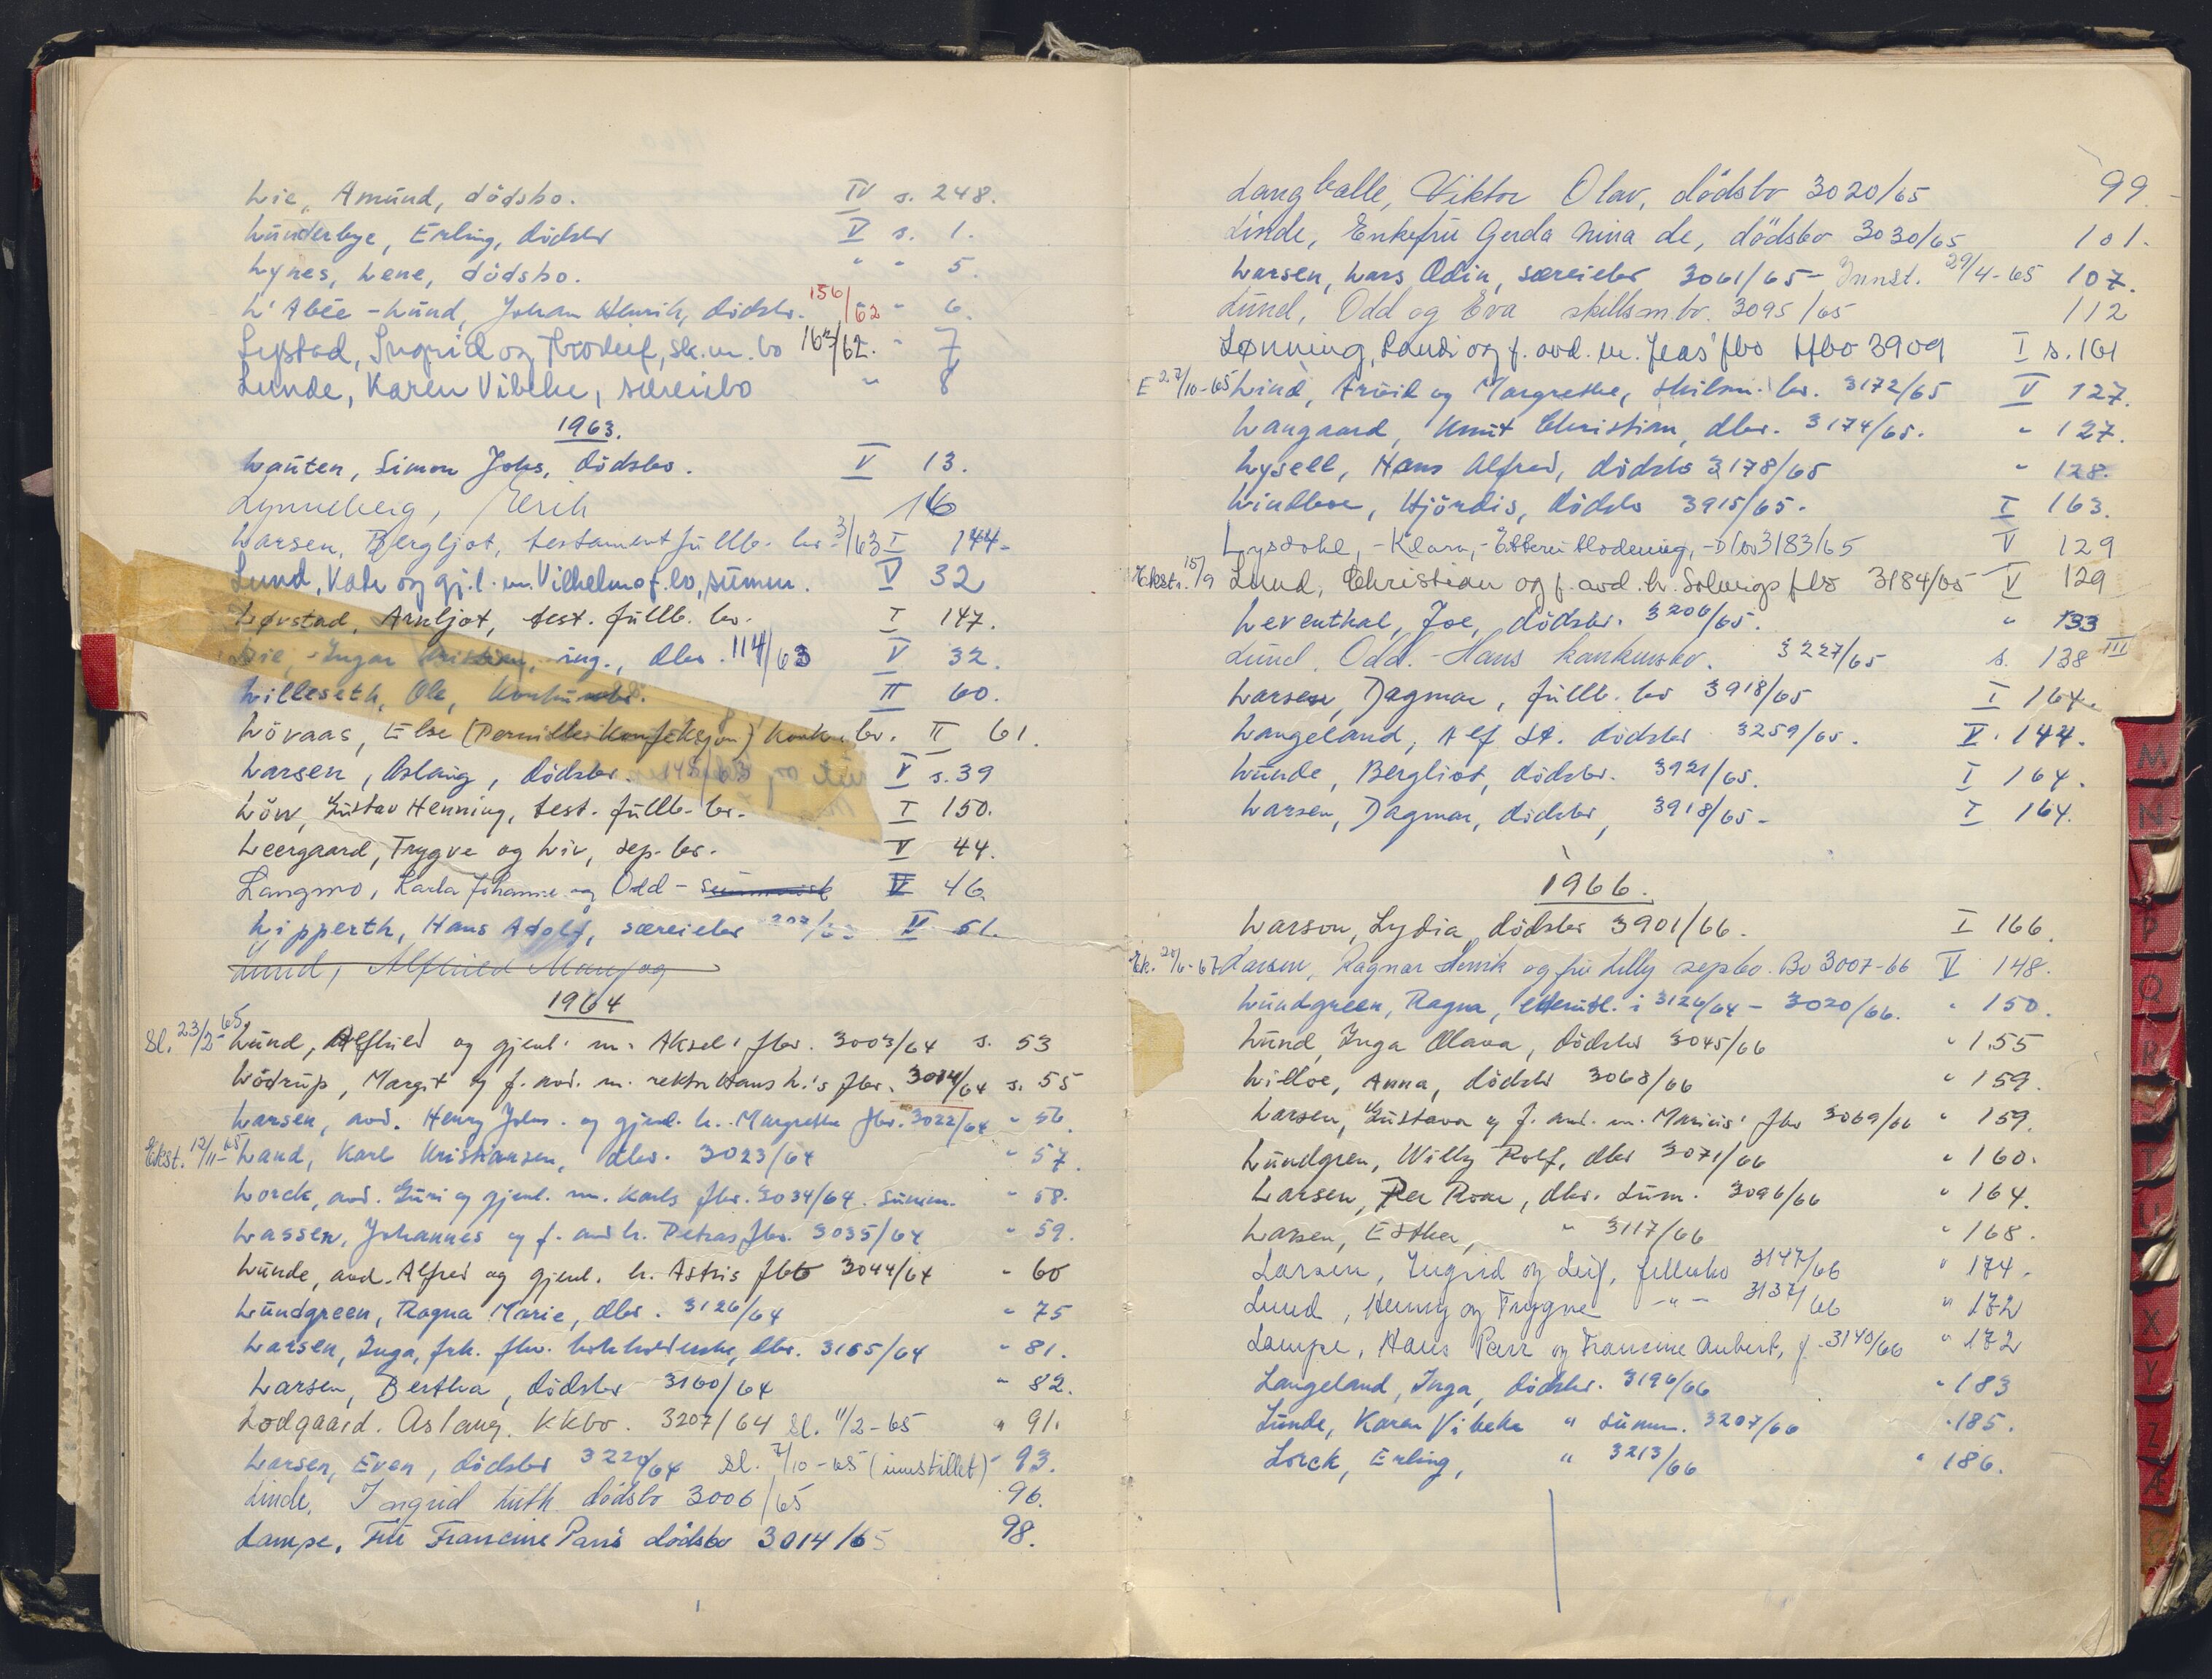 Lie, Amund, dödsbo. IV s. 248.
Lunderbye, Erling, dödsbo V s. 1.
Lynes, Lene, dödsbo. " " 5.
L'Abée-Lund, Johan Henrik, dödsbo. 156/62 " 6.
Lystad, Ingrid og Trodeif, sk.m.bo 163/62. " 7
Lunde, Karen Vibeke, særeiebo " 8
1963.
Lauten, Simon Johs, dödsbo. V 13.
Lynneberg, Erik 16
Larsen, Bergljot, testamentfullb. bo. 3/63 I 144.
Lund, Vale og gj.l. m. Vilhelms f.bo, summ. V 32
Løvstad, Arnljot, test. fullb. bo. I 147.
Lie, Ingar Kristian, ing., dbo. 114/63 V 32.
Lilleseth, Ole, konkursbo. II 60.
Lövaas, Else (Pernilles Konfeksjon) konk. bo. II 61.
Larsen, Aslaug, dödsbo. V s. 39
Löw, Gustav Henning, test. fullb. bo. I 150.
Leergaard, Trygve og Liv, sep. bo. V 44.
Langmo, Karla Johanne og Odd - V 46
Lipperth, Hans Adolf, særeiebo 207/63 V 51.
Lund, Alfhild Mary og
1964
Sl. 23/2-65. Lund, Alfhild og gjenl. m. Aksels fbo. 3003/64 s. 53
Lödrup, Margit og f. avd. m. rektor Hans L.'s fbo. 3014/64 s. 55
Larsen, avd. Henry Johs. og gjenl. h. Margrethe fbo. 3022/64 " 56.
Ekst. 12/11-65 Land, Karl Kristiansen, dbo. 3023/64 " 57.
Lorck, avd. Guri og gjenl. m. Karls fbo. 3034/64. summ. " 58.
Lassen, Johannes og f. avd h. Petras fbo. 3035/64 " 59.
Lunde, avd. Alfred og gjenl. h. Astris fbo 3044/64 " 60
Lundgreen, Ragna Marie, dbo. 3126/64 " 75
Larsen, Inga, frk. fhv. bokholderske, dbo. 3155/64 " 81.
Larsen, Bertha, dödsbo 3160/64 " 82.
Lodgaard. Aslaug. kkbo. 3207/64 Sl. 11/2-65 " 91.
Larsen, Even, dödsbo 3220/64 Sl. 7/10-65 (innstillet) " 93.
Linde, Ingrid Luth dödsbo 3006/65 96.
Lampe, Fru Francine Parrs dödsbo 3014/65 98.
Langballe, Viktor Olav, dödsbo 3020/65 99.
Linde, Enkefru Gerda Nina de, dödsbo 3030/65 101.
Larsen, Lars Odin, særeiebo 3061/65 - Innst. 29/4-65 107.
Lund, Odd og Eva skillsm.bo. 3095/65 112
Lønning, Randi og f. avd. m. Jeas' fbo Hbo 3909 I s. 161
E 27/10-65 Lind, Arvid og Margrethe, skilsm. bo. 3172/65 V 127.
Langaard, Knut Christian, dbo. 3174/65. " 127.
Lysell, Hans Alfred, dödsbo 3178/65 " 128.
Lindboe, Hjördis, dödsbo 3915/65. I 163.
Lysdahl, -Klara, -Etterutlodning, -Dbo 3183/65 V 129
Ekstr. 15/9 Lund, Christian og f. avd. h. Solveigs fbo 3184/65 V 129
Leventhal, Joe, dödsbo. 3206/65. " 133
Lund, Odd. - Hans konkursbo. 3227/65 s. 138 III
Larsen, Dagmar, fullb. bo 3918/65 I 164.
Langeland, Alf St. dödsbo 3259/65. V. 144.
Lunde, Bergliot, dödsbo. 3921/65. I 164.
Larsen, Dagmar, dödsbo, 3918/65 - I 164.
1966.
Larson, Lydia, dödsbo 3901/66. I 166.
Ek. 20/6-67 Larsen, Ragnar Henrik og fru Lilly sepbo. Bo 3007-66 V 148.
Lundgreen, Ragna, etterutl. i 3126/64 - 3020/66. " 150.
Lund, Inga Olava, dödsbo 3045/66 " 155
Lilloe, Anna, dödsbo 3068/66 " 159.
Larsen, Gustava og f. avd. m. Marius' fbo 3069/66 " 159.
Lundgren, Willy Rolf, dbo 3071/66 " 160.
Larsen, Per Roar, dbo. sum. 3096/66 " 164.
Larsen, Esther, " 3117/66 " 168.
Larsen, Ingrid og Leif, fellesbo 3147/66 " 174.
Lund, Henny og Trygve - " - 3137/66 " 172
Lampe, Hans Parr og Francine Aubert, f. 3140/66 " 172
Langeland, Inga, dödsbo. 3196/66 " 183
Lunde, Karen Vibeke " summ. 3207/66 " 185.
Lorck, Erling, " 3213/66 " 186.
M
N
P
Q
R
T
U
X
Y
Z
Æ